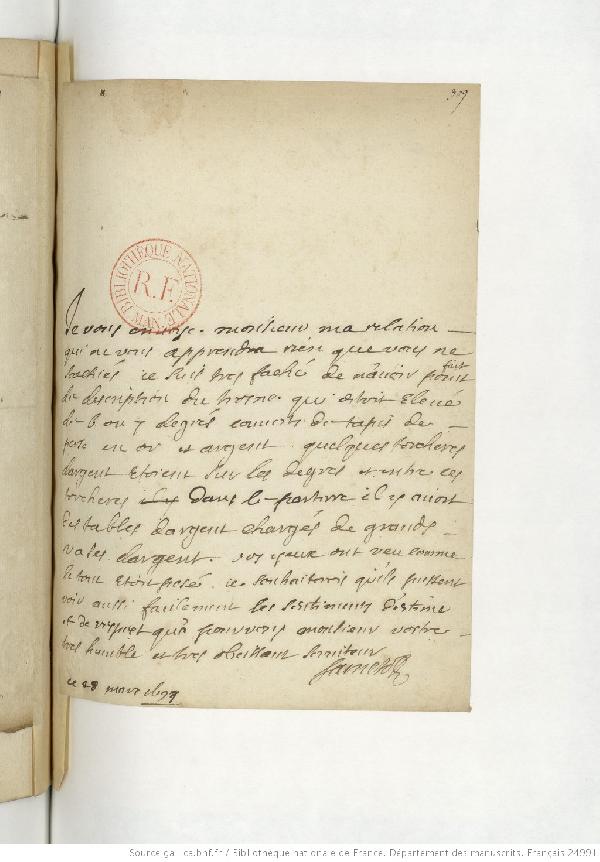 309
BIBLIOTHÈQUE NATIONALE MSS
R.F.
Je vous envoye monsieur ma relation
qui ne vous apprendra rien que vous ne
sachiés ie suis tres faché de n'auoir fait point
de description du trosne qui estoit eleué
de 6 ou 7 degrés couuerts de tapis de
perse en or et argent quelques torcheres
dargent etoient sur les degres et entre ces
torcheres dans le parterre il y auoit
des tables dargent chargés de grands
vases dargent. vos yeux ont veu comme
le tout etoit posé ie souhaiterois quils pussent
voir aussi facilement les sentiments destime
et de respect qua pour vous monsieur vostre
tres humble et tres obeissant seruiteur
ce 28 mars
Source gallica.bnf.fr / Bibliothèque nationale de France. Département des manuscrits. Français 24991